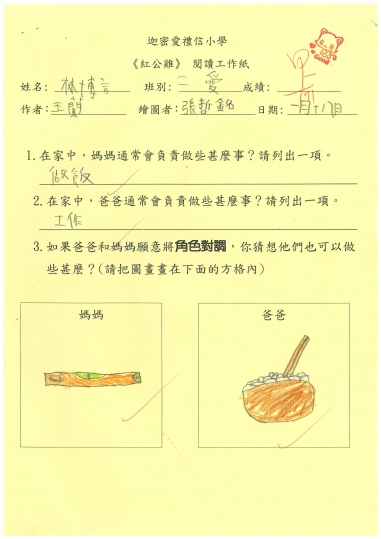 迦密愛禮信小學
《紅公雞》 閱讀工作紙
姓名: 林博言 班別: 二 愛 成績:
作者: 王蘭 繪圖者: 張哲銘 日期: 一月十八日
1. 在家中，媽媽通常會負責做些甚麼事？請列出一項。
做飯
2. 在家中，爸爸通常會負責做些甚麼事？請列出一項。
工作
3. 如果爸爸和媽媽願意將角色對調，你猜想他們也可以做
些甚麼？(請把圖畫畫在下面的方格內)
媽媽 爸爸